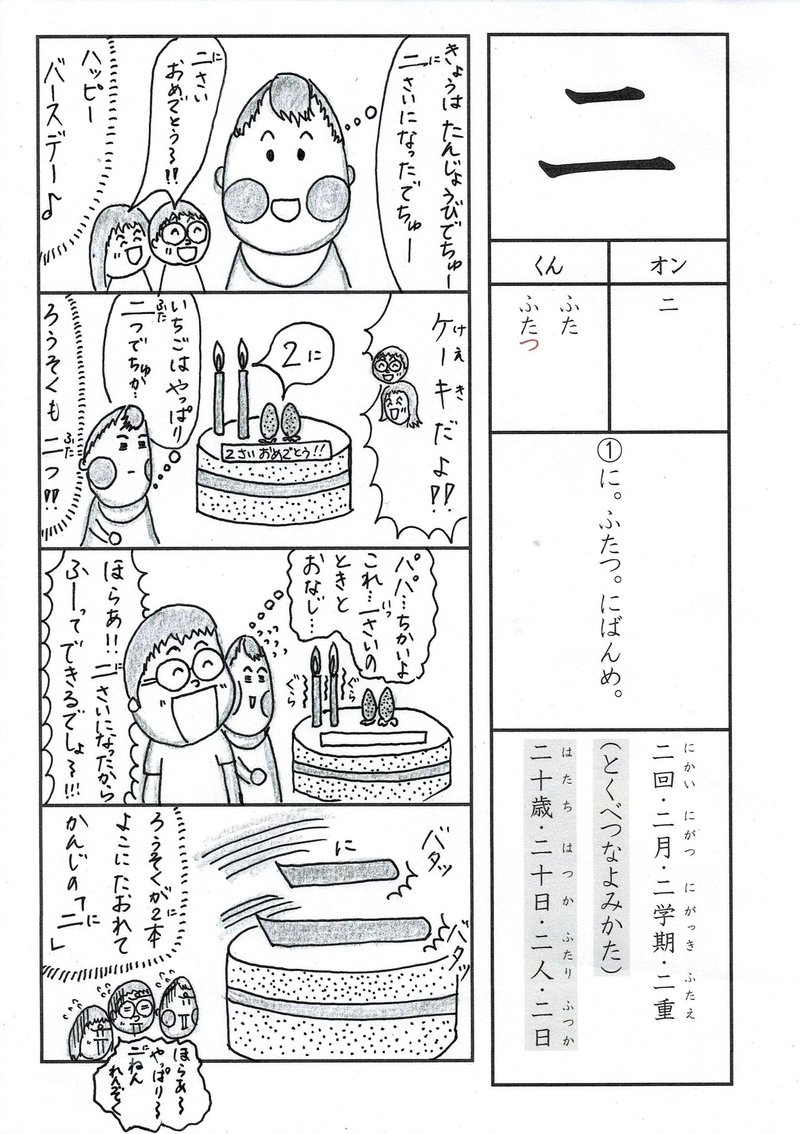 二
オン
ニ
くん
ふた
ふたつ
①に。ふたつ。にばんめ。
にかい にがつ にがっき ふたえ
二回・二月・二学期・二重
(とくべつなよみかた)
はたち はつか ふたり ふつか
二十歳・二十日・二人・二日
きょうは たんじょうびでちゅー
に
二さいになったでちゅー
に
二さい
おめでとう〜!!
ハッピー
バースデー♪
けえき
ケーキだよ!!
2に
2さいおめでとう!!
いちごは やっぱり
ふた
二つでちゅが…
ふた
ろうそくも 二つ!!
パパ…ちかいよ
いっ
これ…一さいの
ときと
おなじ…
ぐら
ぐら
に
ほらあ!! 二さいになったから
ふーってできるでしょ〜!!!
バタッ
に
バタッ
ろうそくが2本
よこにたおれて
に
かんじの「二」
ほらあ〜
やっぱり〜
に
二ねん
れんぞく